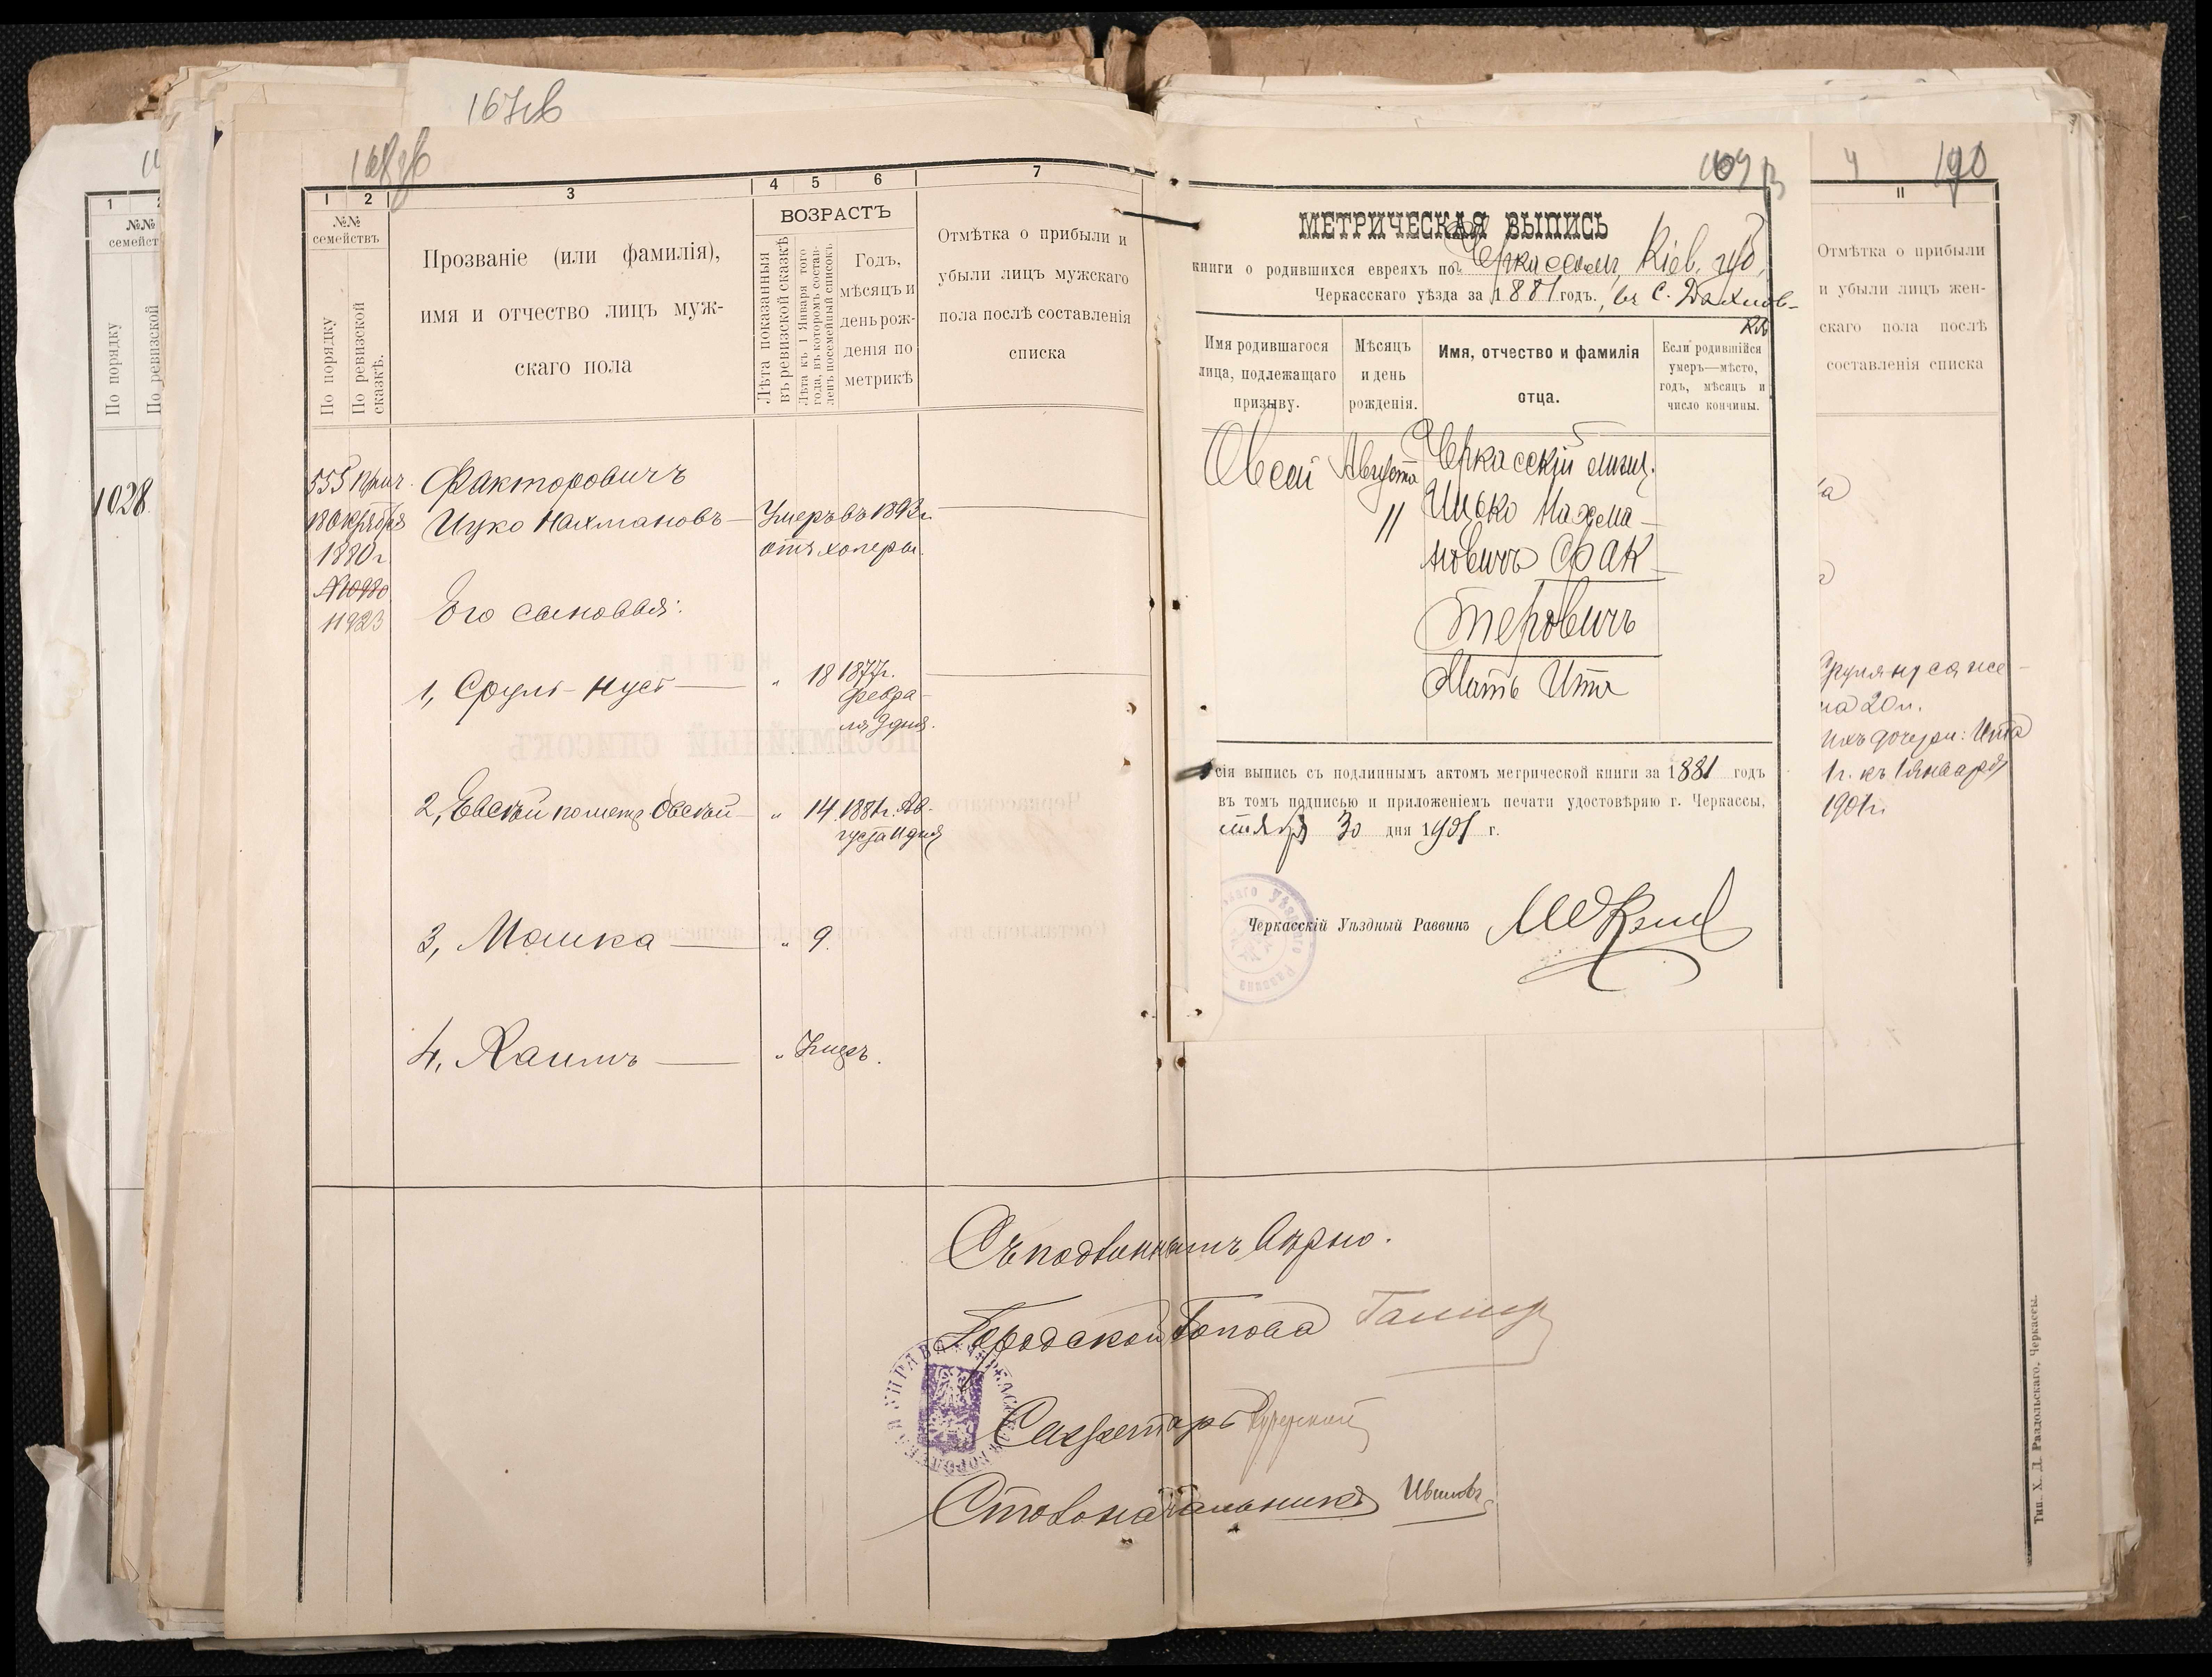 167об
168об
1
2
3
4
5
6
7
№№
семействъ
По порядку
По ревизской
сказкѣ.
Прозваніе (или фамилія),
имя и отчество лицъ муж-
скаго пола
ВОЗРАСТЪ
Лѣта показанныя
въ ревизской сказкѣ
Лѣта къ 1 Января того
года, въ которомъ состав-
ленъ посемейный списокъ.
Годъ,
мѣсяцъ и
день рож-
денія по
метрикѣ
Отмѣтка о прибыли и
убыли лицъ мужскаго
пола послѣ составленія
списка
1028
555
Факторовичъ
Ицко Нахмановъ — Умеръ въ 1893 г.
отъ холеры.
1880 г.
11923
Его сыновья:
1, Сруль-Нусь — „ 18 1877 г.
Февра-
ля 9 дня.
2, Евсѣй по метр. Овсѣй — „ 14 1881 г. Ав-
густа 11 дня
3, Мошка — „ 9.
4, Хаимъ — „ Умеръ.
Съ подлиннымъ вѣрно.
Городской Голова
Секретарь
Столоначальникъ
169
МЕТРИЧЕСКАЯ ВЫПИСЬ
книги о родившихся евреяхъ по г. Черкассамъ, Кіев. губ.
Черкасскаго уѣзда за 1881 годъ., въ с. Дахнов-
кѣ
Имя родившагося
лица, подлежащаго
призыву.
Мѣсяцъ
и день
рожденія.
Имя, отчество и фамилія
отца.
Если родившійся
умеръ—мѣсто,
годъ, мѣсяцъ и
число кончины.
Овсей Августа 11
Черкасскій мѣщ.
Ицько Нахма-
новичъ Фак-
теровичъ
Мать Ита
сія выпись съ подлиннымъ актомъ метрической книги за 1881 годъ
въ томъ подписью и приложеніемъ печати удостовѣряю г. Черкассы,
30 дня 1901 г.
Черкасскій Уѣздный Раввинъ
190
11
Отмѣтка о прибыли
и убыли лицъ жен-
скаго пола послѣ
составленія списка
Сруля Нуся же-
на 20 л.
Ихъ дочери: Ита
1 г. къ 1 января
1901 г.
Тип. Х. Д. Раздольскаго, Черкассы.